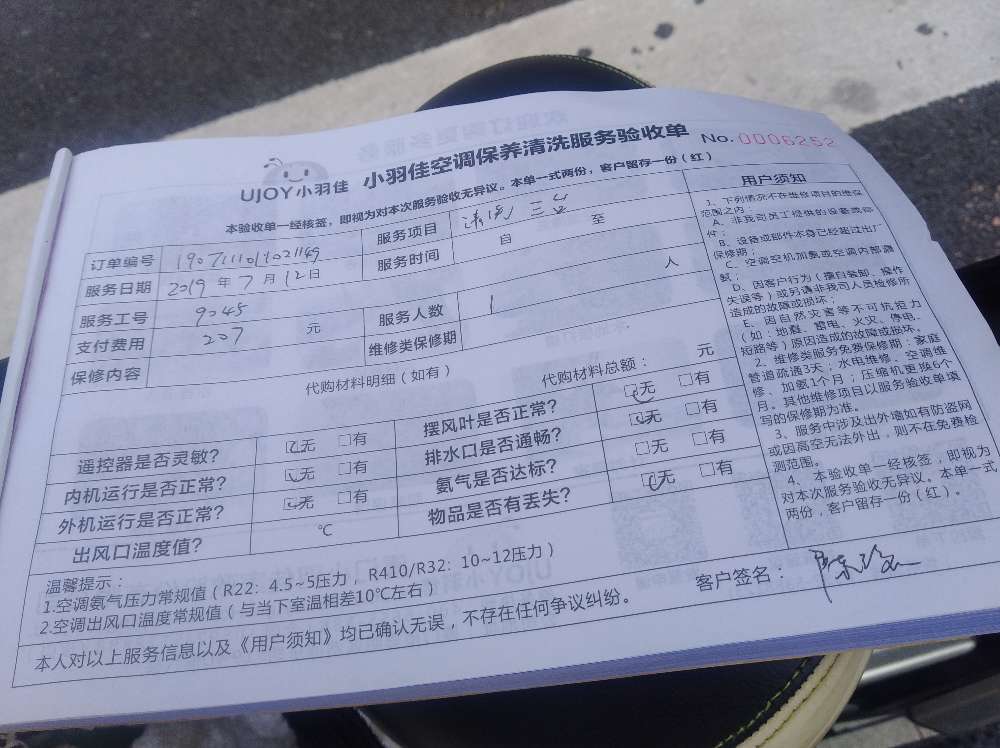 UJOY小羽佳 小羽佳空调保养清洗服务验收单 No.0006252
本验收单一经核签，即视为对本次服务验收无异议。本单一式两份，客户留存一份（红）
订单编号
服务项目 清洗 三台
服务日期 2019年7月12日
服务时间 自 至
服务工号 9045
服务人数 1 人
支付费用 207 元
维修类保修期
保修内容
代购材料明细（如有） 代购材料总额： 元
遥控器是否灵敏？ ☑无 □有
摆风叶是否正常？ ☑无 □有
内机运行是否正常？ ☑无 □有
排水口是否通畅？ ☑无 □有
外机运行是否正常？ ☑无 □有
氨气是否达标？ □无 □有
出风口温度值？ ℃
物品是否有丢失？ ☑无 □有
温馨提示：
1.空调氨气压力常规值（R22: 4.5~5压力，R410/R32: 10~12压力）
2.空调出风口温度常规值（与当下室温相差10℃左右）
客户签名：
本人对以上服务信息以及《用户须知》均已确认无误，不存在任何争议纠纷。
用户须知
1、下列情况不在维修项目的维保
范围之内
A、非我司员工提供的设备或部
件；
B、设备或部件本身已经超过出厂
保修期；
C、空调空机加氨或空调内部漏
氨；
D、因客户行为（擅自装卸、操作
失误等）或另请非我司人员检修所
造成的故障或损坏；
E、因自然灾害等不可抗拒力
（如：地震、雷电、火灾、停电、
短路等）原因造成的故障或损坏。
2、维修类服务免费保修期：家庭
管道疏通3天；水电维修、空调维
修、加氨1个月；压缩机更换6个
月。其他维修项目以服务验收单填
写的保修期为准。
3、服务中涉及出外墙如有防盗网
或因高空无法外出，则不在免费检
测范围。
4、本验收单一经核签，即视为
对本次服务验收无异议。本单一式
两份，客户留存一份（红）。